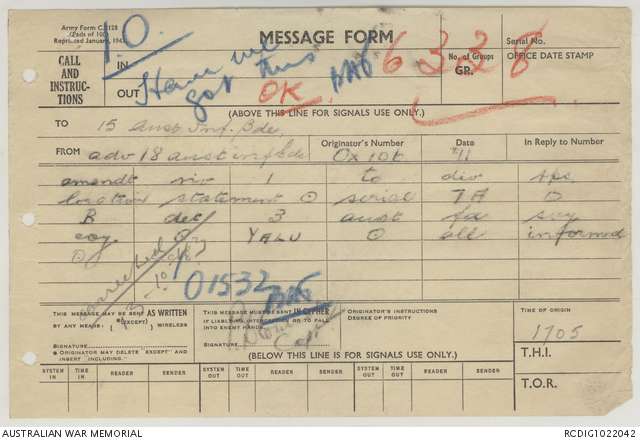 Army Form C.2128
(Pads of 100)
MESSAGE FORM
Serial No.
CALL AND INSTRUC-TIONS
IN
OUT
10.
Have we got this
OK
6328
No. of Groups
GR.
OFFICE DATE STAMP
(ABOVE THIS LINE FOR SIGNALS USE ONLY.)
TO 15 Aust Inf. Bde.
FROM adv 18 aust inf bde
Originator's Number
Date
In Reply to Number
11
amendt 1 to div
location statement ⊙ serial 7A ⊙
B 3 aust fd svy
coy ⊙ YALU ⊙ all informed
⊙
01532
THIS MESSAGE MAY BE SENT AS WRITTEN
BY ANY MEANS (EXCEPT) WIRELESS
SIGNATURE
ORIGINATOR MAY DELETE "EXCEPT" AND INSERT (INCLUDING).
THIS MESSAGE MUST BE SENT IN CIPHER
IF LIABLE TO INTERCEPTION OR TO FALL
INTO ENEMY HANDS.
SIGNATURE
Capt
ORIGINATOR'S INSTRUCTIONS
DEGREE OF PRIORITY
TIME OF ORIGIN
1705
T.H.I.
T.O.R.
(BELOW THIS LINE IS FOR SIGNALS USE ONLY.)
SYSTEM IN
TIME IN
READER
SENDER
SYSTEM OUT
TIME OUT
READER
SENDER
SYSTEM OUT
TIME OUT
READER
SENDER
AUSTRALIAN WAR MEMORIAL
RCDIG1022042